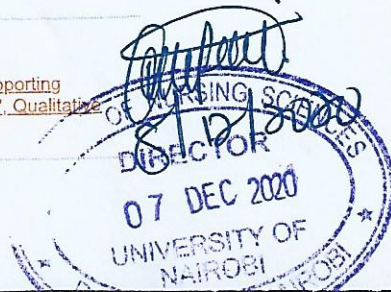 pporting
, Qualitative
OF NURSING SCIENCES
8/12/2020
DIRECTOR
07 DEC 2020
UNIVERSITY OF
NAIROBI
NAIROBI